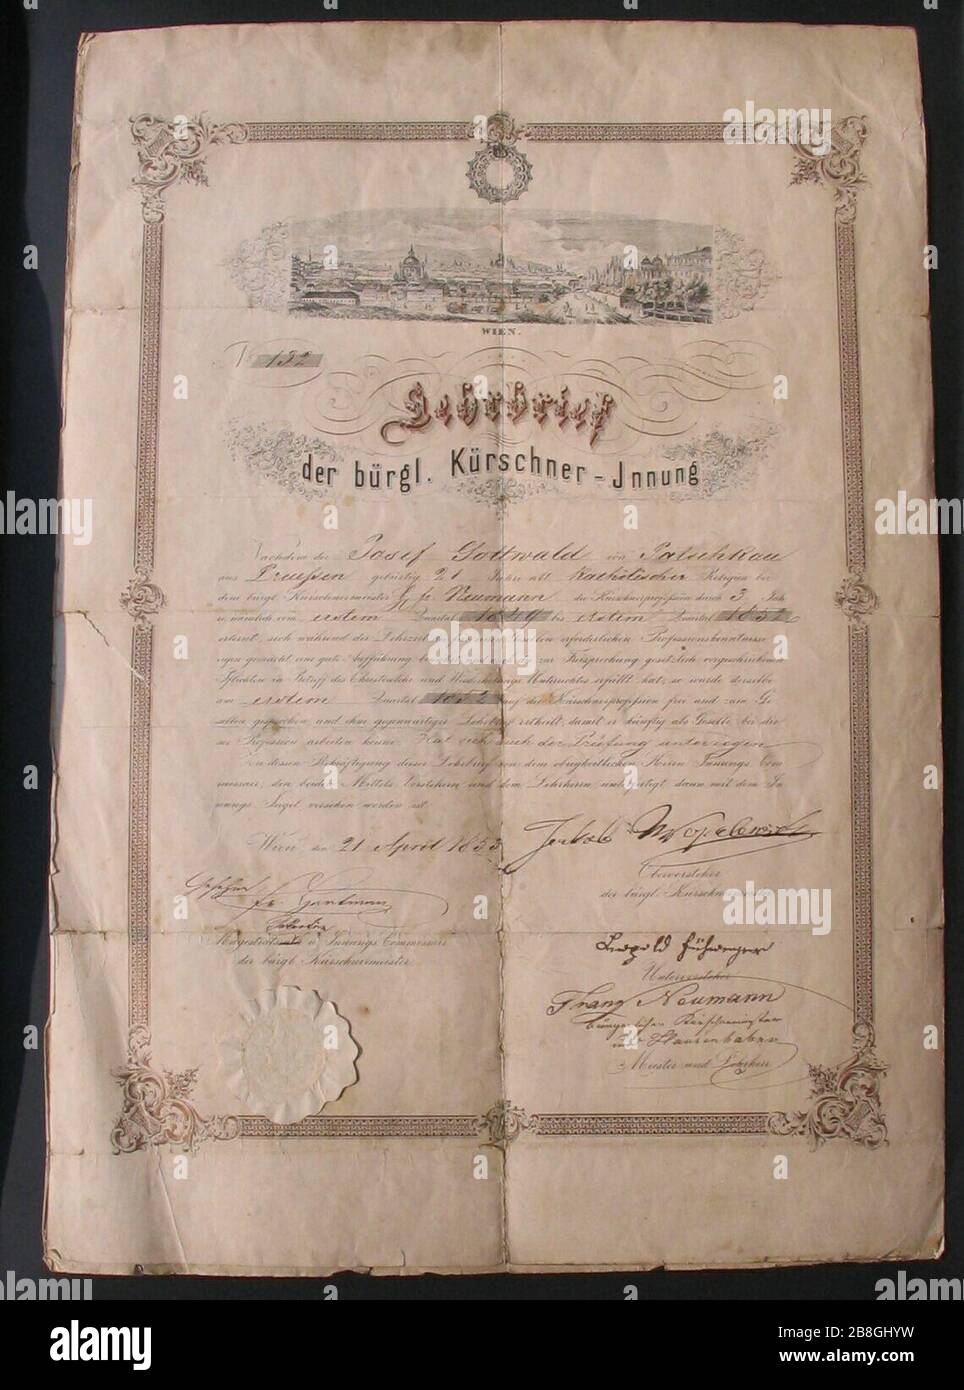 WIEN.
No 132
Lehrbrief
der bürgl. Kürschner-Jnnung
Nachdem der Josef Gottwald von Patschkau
aus Preußen gebürtig 21 Jahre alt Katholischer Religion bei
dem bürgl. Kürschnermeister Neumann die Kürschnerprofession durch 3 Jah
re, nämlich vom erstem Quartal 1849 bis erstem Quartal 1852
erlernt, sich während der Lehrzeit die erforderlichen Professionskenntniss
eigen gemacht, eine gute Aufführung zur Freisprechung gesetzlich vorgeschriebenen
Pflichten in Betreff des Christenlehr und Wiederholungs Unterrichtes erfüllt hat, so wurde derselbe
am erstem Quartal 1852 auf die Kürschnerprofession frei und zum Ge-
sellen gesprochen und ihm gegenwärtiger Lehrbrief ertheilt, damit er künftig als Geselle bei die-
ser Profession arbeiten könne. Hat sich auch der Prüfung unterzogen
Zu dessen Bekräftigung dieser Lehrbrief von dem obrigkeitlichen Herrn Innungs Com-
missair, den beiden Mittels Vorstehern und dem Lehrherrn unterfertigt dann mit dem In-
nungs Siegel versehen worden ist.
Wien den 21 April 1853
Jakob
Obervorsteher
der bürgl. Kürschner
Gesehen
Magistrats u Innungs Commissär
der bürgl. Kürschnermeister
Leopold
Untervorsteher
Franz Neumann
bürgerlicher Kürschnermeister
Meister und Lehrherr
alamy
Image ID: 2B8GHYW
www.alamy.com